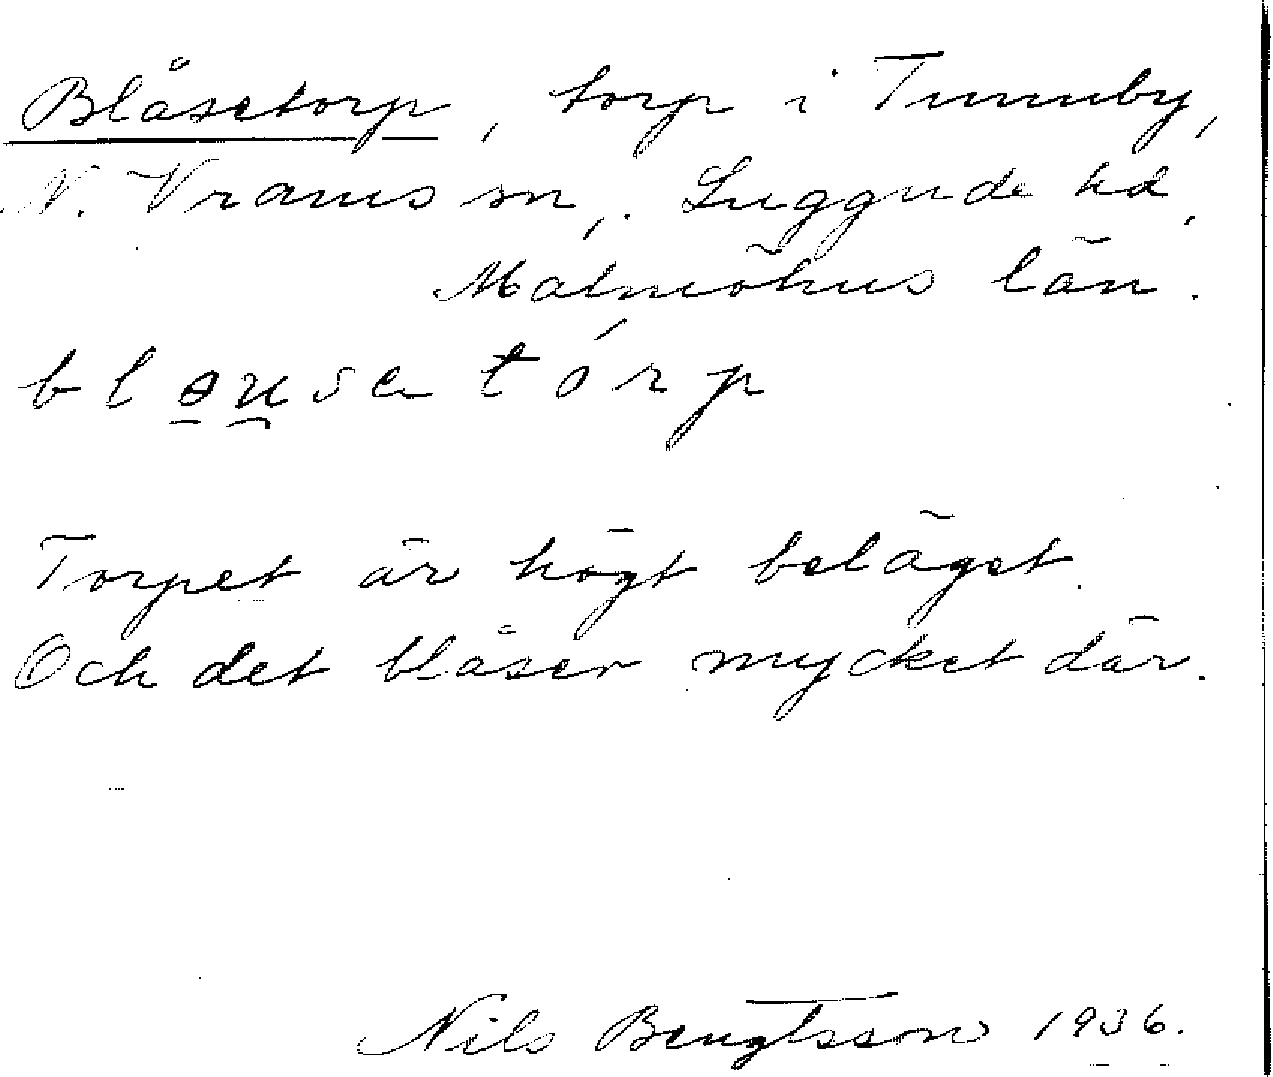 Blåsetorp, torp i Tunnby,
N. Vrams sn, Luggude hd,
Malmöhus län.
blausatórp
Torpet är högt beläget.
Och det blåser mycket där.
Nils Bengtsson 1936.